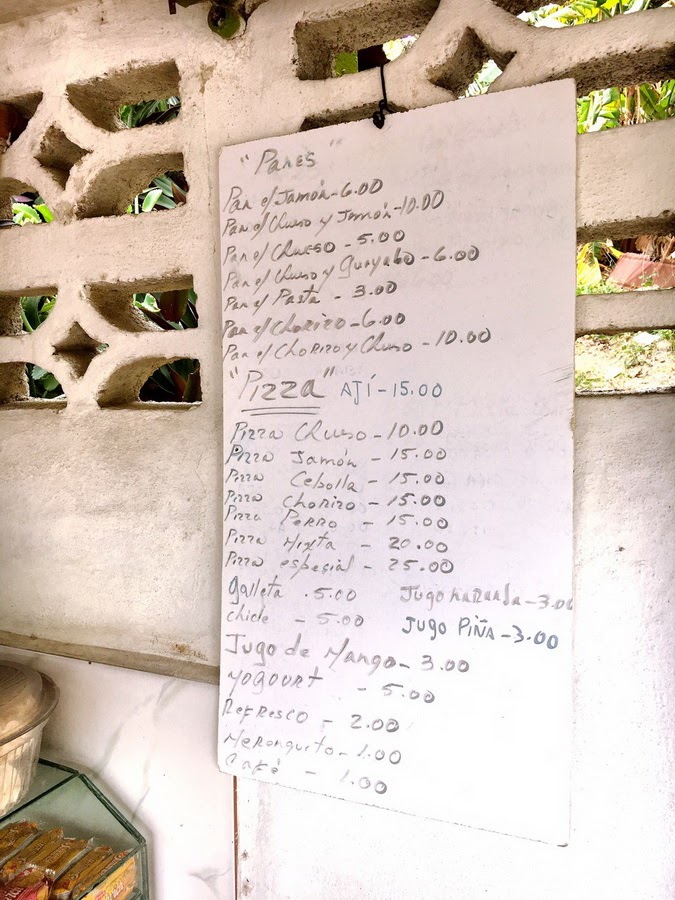 "Panes"
Pan c/ Jamón - 6.00
Pan c/ Queso y Jamón - 10.00
Pan c/ Queso - 5.00
Pan c/ Queso y Guayaba - 6.00
Pan c/ Pasta - 3.00
Pan c/ Chorizo - 6.00
Pan c/ Chorizo y Queso - 10.00
"Pizza" AJÍ - 15.00
Pizza Queso - 10.00
Pizza Jamón - 15.00
Pizza Cebolla - 15.00
Pizza Chorizo - 15.00
Pizza Perro - 15.00
Pizza Mixta - 20.00
Pizza especial - 25.00
galleta . 5.00 Jugo naranja - 3.00
chicle - 5.00 Jugo PIÑA - 3.00
Jugo de Mango - 3.00
yogourt - 5.00
Refresco - 2.00
Merenguito - 1.00
Café - 1.00